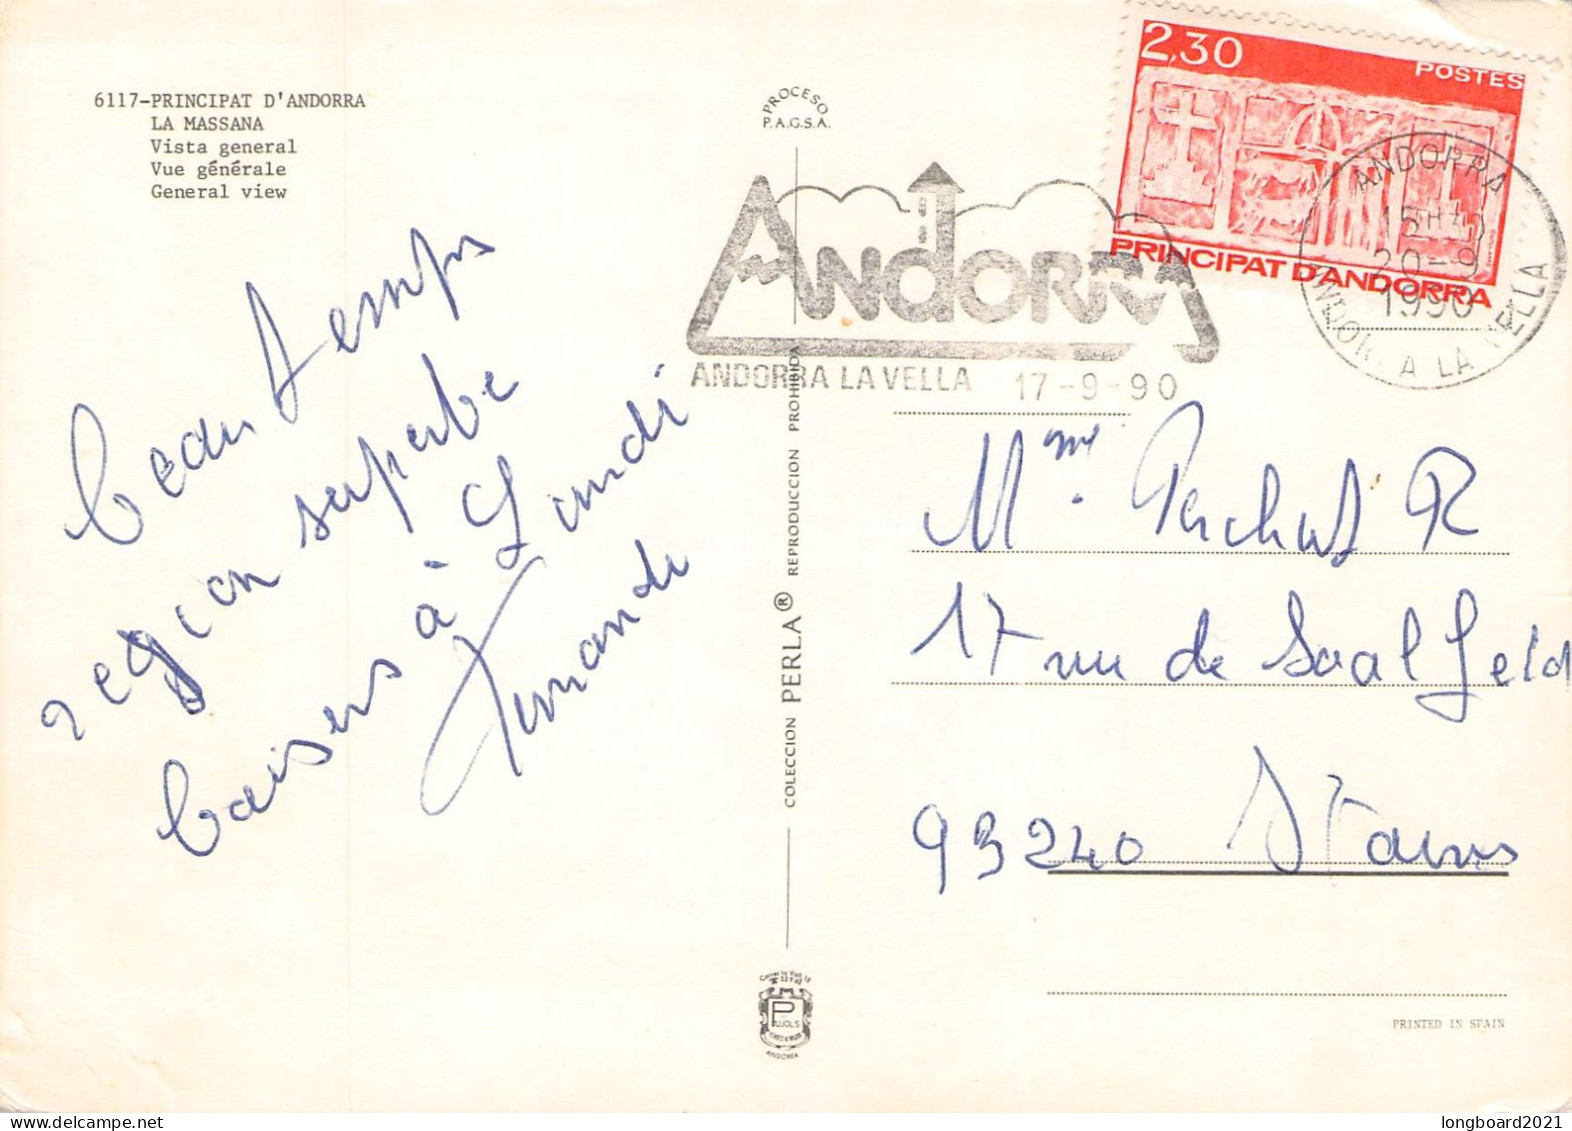 6117-PRINCIPAT D'ANDORRA
LA MASSANA
Vista general
Vue générale
General view
PROCESO
P.A.G.S.A.
2,30
POSTES
PRINCIPAT D'ANDORRA
ANDORRA
15H30
20-9
1990
ANDORRA LA VELLA
ANDORRA
ANDORRA LA VELLA 17-9-90
beau temps
region superbe
baisers à Lundi
Fernande
COLECCION PERLA® REPRODUCCION PROHIBIDA
Mme. Perchat R
17 rue de Saalfeld
93240 Stains
P
PUJOLS
ANDORRA
PRINTED IN SPAIN
longboard2021